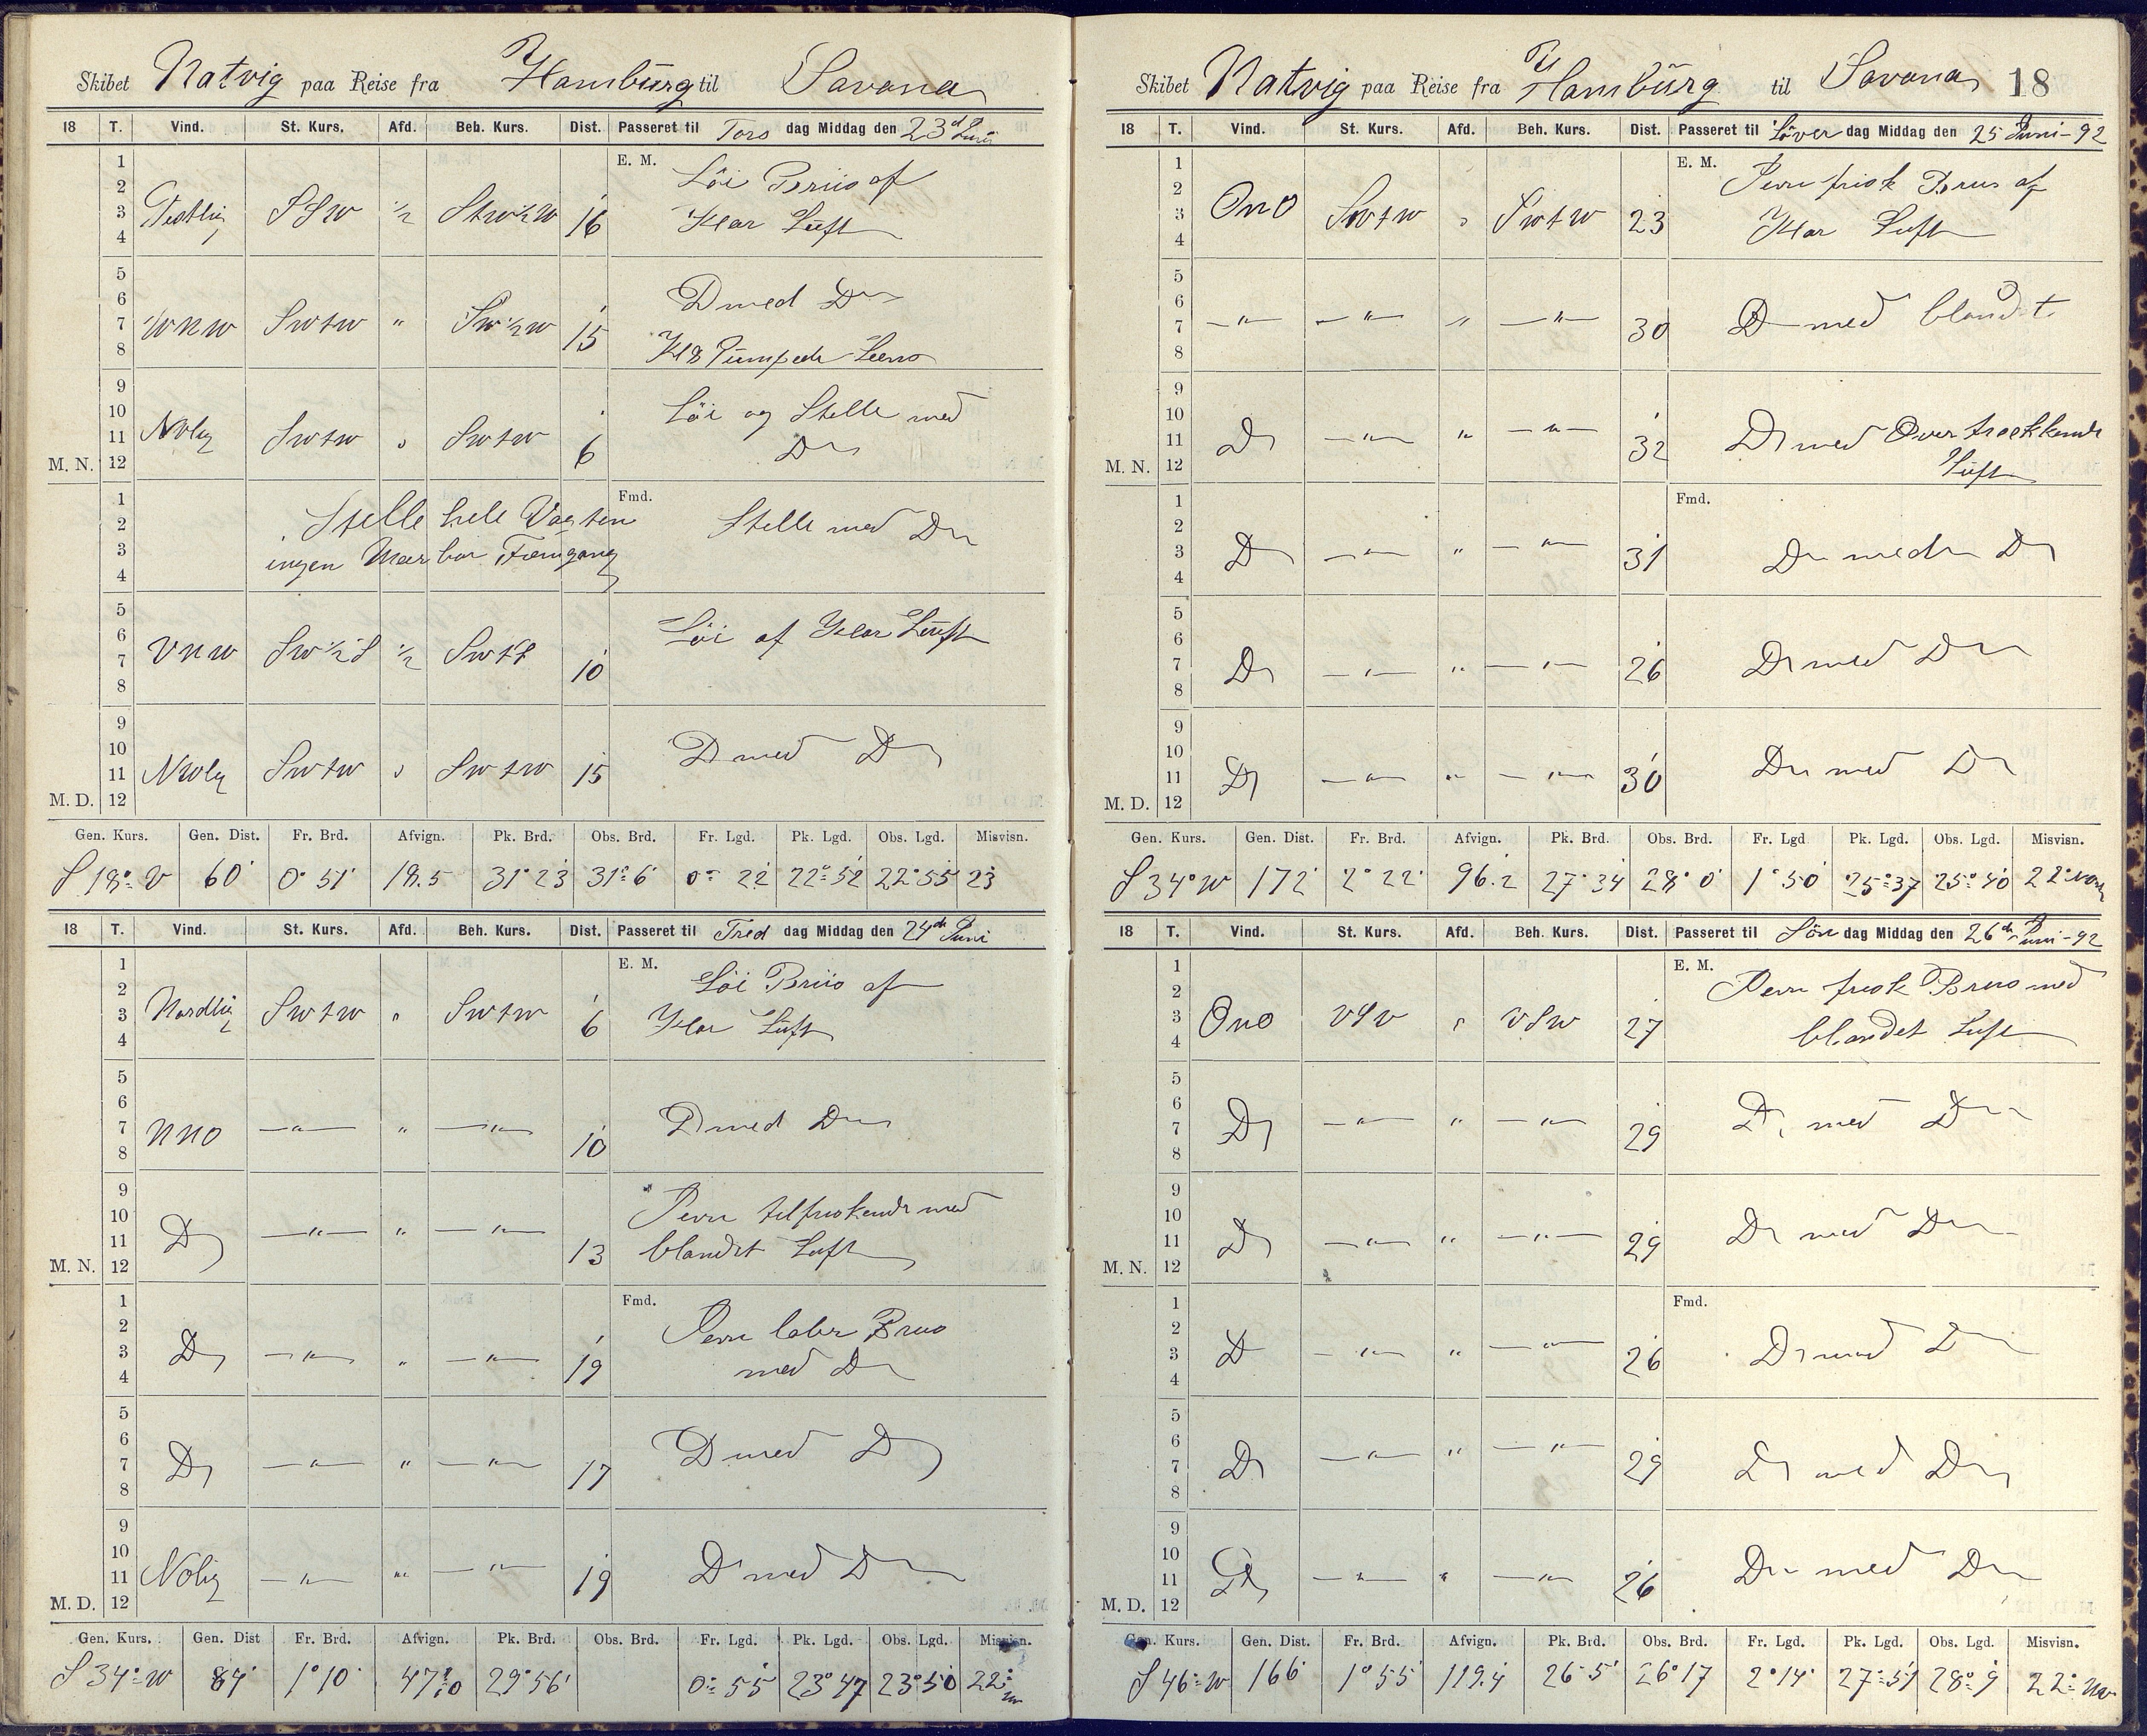 Skibet Natvig paa Reise fra Hamburg til Savana
18 T. Vind. St. Kurs. Afd. Beh. Kurs. Dist. Passeret til Tors dag Middag den 23d Juni
1 E. M. Löi Briis af
2
3 Vestlig SSW 1/2 StW1/2W 16 Klar Luft
4
5
6 D med Do
7 WNW SWtW " SW1/2W 15
8 Kl 8 Pumpede Lens
9
10 Löi og Stelle med
11 Nolig SWtW " SWtW 6 Do
M. N. 12
1 Stelle hele Vagten Fmd.
2 Stelle med Do
3 ingen Mærbar Fremgang
4
5
6 Löi af Klar Luft
7 VNW SW1/2S 1/2 SWtS 10
8
9
10 D med D
11 NWlig SWtW " SWtW 15
M. D. 12
Gen. Kurs. Gen. Dist. Fr. Brd. Afvign. Pk. Brd. Obs. Brd. Fr. Lgd. Pk. Lgd. Obs. Lgd. Misvisn.
S 18° V 60' 0° 51' 18.5 31° 23 31° 6' 0° 22 22° 52 22° 55 23
18 T. Vind. St. Kurs. Afd. Beh. Kurs. Dist. Passeret til Fred dag Middag den 24de Juni
1 E. M. Löi Briis af
2
3 Nordlig SWtW " SWtW 6 Klar Luft
4
5
6
7 NNO —"— " —"— 10 D med Do
8
9
10 Jevn tilfriskende med
11 D —"— " —"— 13 blandet Luft
M. N. 12
1 Fmd.
2 Jevn laber Briis
3 D —"— " —"— 19 med Do
4
5
6 D med D
7 D —"— " —"— 17
8
9
10
11 Nolig —"— " —"— 19 D med D
M. D. 12
Gen. Kurs. Gen. Dist Fr. Brd. Afvign. Pk. Brd. Obs. Brd. Fr. Lgd. Pk. Lgd. Obs. Lgd. Misvisn.
S 34° W 84' 1° 10' 47.0 29° 56' 0° 55' 23° 47 23° 50 22°
Skibet Natvig paa Reise fra Hamburg til Savana 18
18 T. Vind. St. Kurs. Afd. Beh. Kurs. Dist. Passeret til Löver dag Middag den 25 Juni - 92
1 E. M. Jevn frisk Briis af
2
3 ONO SWtW " SWtW 23 Klar Luft
4
5
6 D med blandt
7 —"— —"— " —"— 30
8
9
10
11 D —"— " —"— 32 D med Overtrækkende
M. N. 12 Luft
1 Fmd.
2
3 D —"— " —"— 31 Do med D
4
5
6
7 D —"— " —"— 26 D med D
8
9
10
11 D —"— " —"— 30 Do med D
M. D. 12
Gen. Kurs. Gen. Dist. Fr. Brd. Afvign. Pk. Brd. Obs. Brd. Fr. Lgd Pk. Lgd. Obs. Lgd. Misvisn.
S 34° W 172' 2° 22' 96.2 27° 34 28° 0' 1° 50' 25° 37 25° 40 22°
18 T. Vind. St. Kurs. Afd. Beh. Kurs. Dist. Passeret til Sön dag Middag den 26de Juni - 92
1 E. M. Jevn frisk Briis med
2
3 ONO VSV " VSW 27 blandet Luft
4
5
6
7 D —"— " —"— 29 D med D
8
9
10
11 D —"— " —"— 29 D med D
M. N. 12
1 Fmd.
2
3 D —"— " —"— 26 D med D
4
5
6
7 D —"— " —"— 29 D med D
8
9
10
11 D —"— " —"— 26 Do med Do
M. D. 12
Gen. Kurs. Gen. Dist. Fr. Brd. Afvign. Pk. Brd. Obs. Brd. Fr. Lgd. Pk. Lgd. Obs. Lgd. Misvisn.
S 46° W 166' 1° 55' 119.4 26° 5' 26° 17 2° 14' 27° 51 28° 9 22°